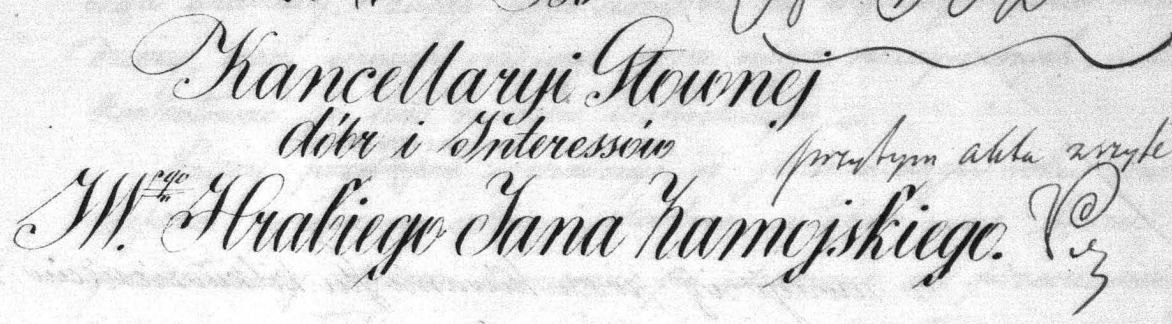 Kancellaryi Głownej
dóbr i Interessów
przytym akta zszyte
JW.ego Hrabiego Jana Zamojskiego.